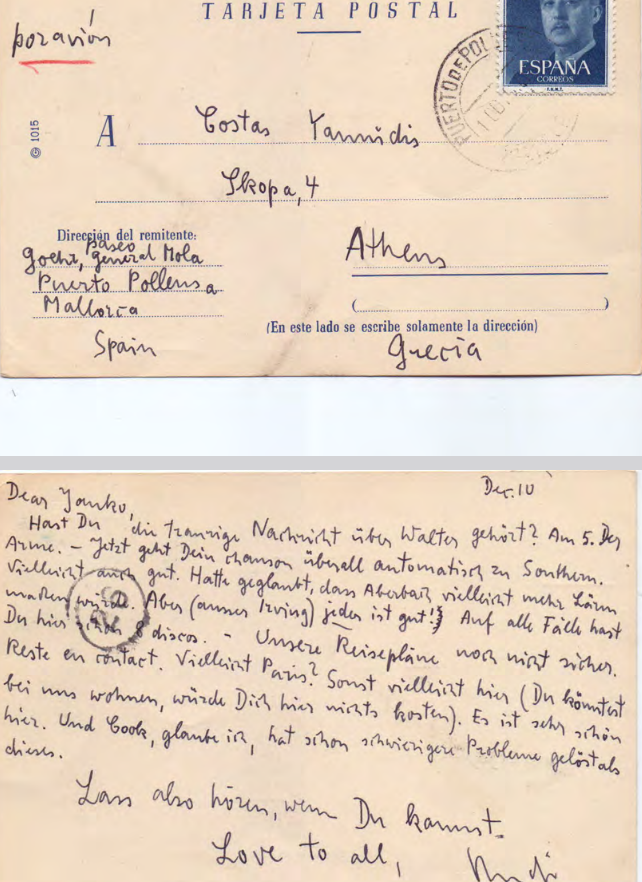 TARJETA POSTAL
por avión
ESPAÑA
CORREOS
PUERTO DE POL
© 1015
A Costas Yannidis
Skopa, 4
Dirección del remitente:
Paseo
Goehr, General Mola
Puerto Pollensa
Mallorca
Spain
Athens
( )
(En este lado se escribe solamente la dirección)
Grecia
Dec. 10
Dear Yanko,
Hast Du die traurige Nachricht über Walter gehört? Am 5. Dez
Arme. – Jetzt geht Dein chanson überall automatisch zu Southern.
Vielleicht auch gut. Hatte geglaubt, dass Aberbach vielleicht mehr Lärm
machen würde. Aber (ausser Irving) jeder ist gut! Auf alle Fälle hast
Du hier 8 discos. – Unsere Reisepläne noch nicht sicher.
Reste en contact. Vielleicht Paris? Sonst vielleicht hier (Du könntest
bei uns wohnen, würde Dich hier nichts kosten). Es ist sehr schön
hier. Und Cook, glaube ich, hat schon schwierigere Probleme gelöst als
dieses.
Lass also hören, wenn Du kannst.
Love to all,
Rudi